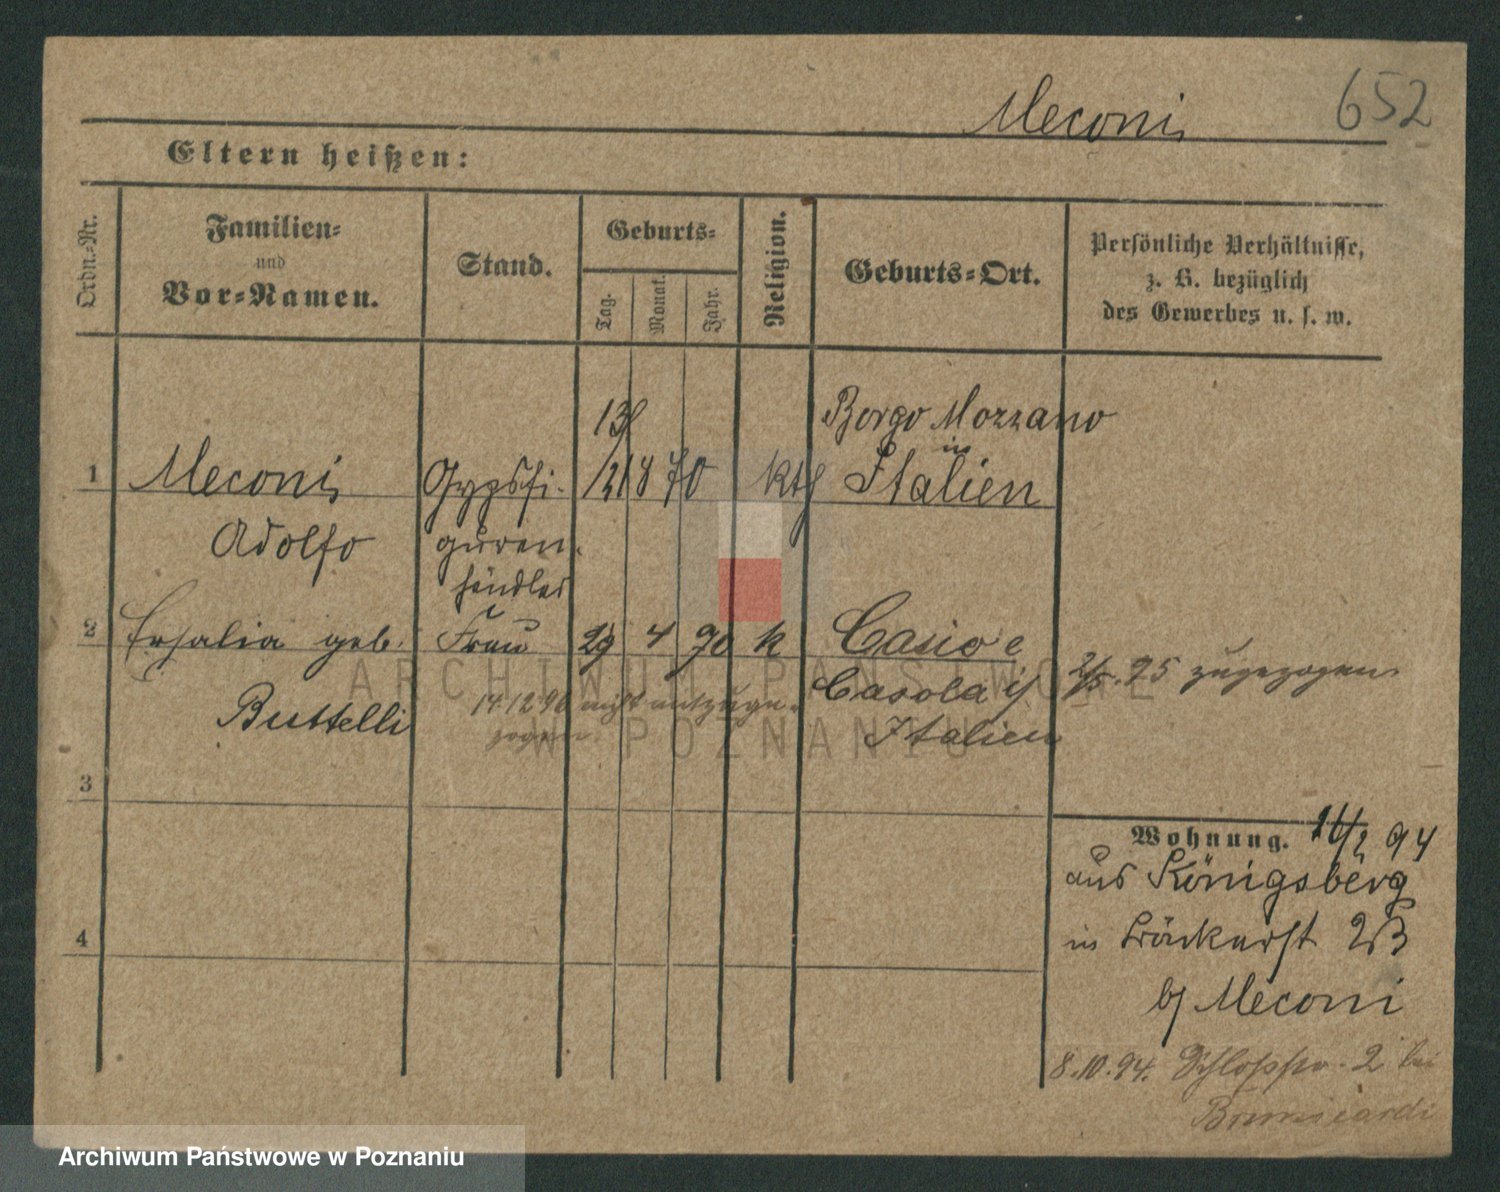 Meconi
652
Eltern heißen:
Ordn.-Nr.
Familien-
und
Vor-Namen.
Stand.
Geburts-
Tag.
Monat.
Jahr.
Religion.
Geburts-Ort.
Persönliche Verhältnisse,
z. B. bezüglich
des Gewerbes u. s. w.
13/
Borgo Mozzano
in
1 Meconi Gypsfi- 12 8 70 kth Italien
Adolfo guren-
händler
2 Ersalia geb. Frau 29 4 70 k Casio e
Buttelli
Casola i/
Italien
2/5. 95 zugezogen
14.12.96 nicht mitzuge-
zogen.
3
4
Wohnung. 94
aus Königsberg
in 23
b/ Meconi
8.10.94. Schloßstr. 2 bei
ARCHIWUM PAŃSTWOWE
W POZNANIU
Archiwum Państwowe w Poznaniu